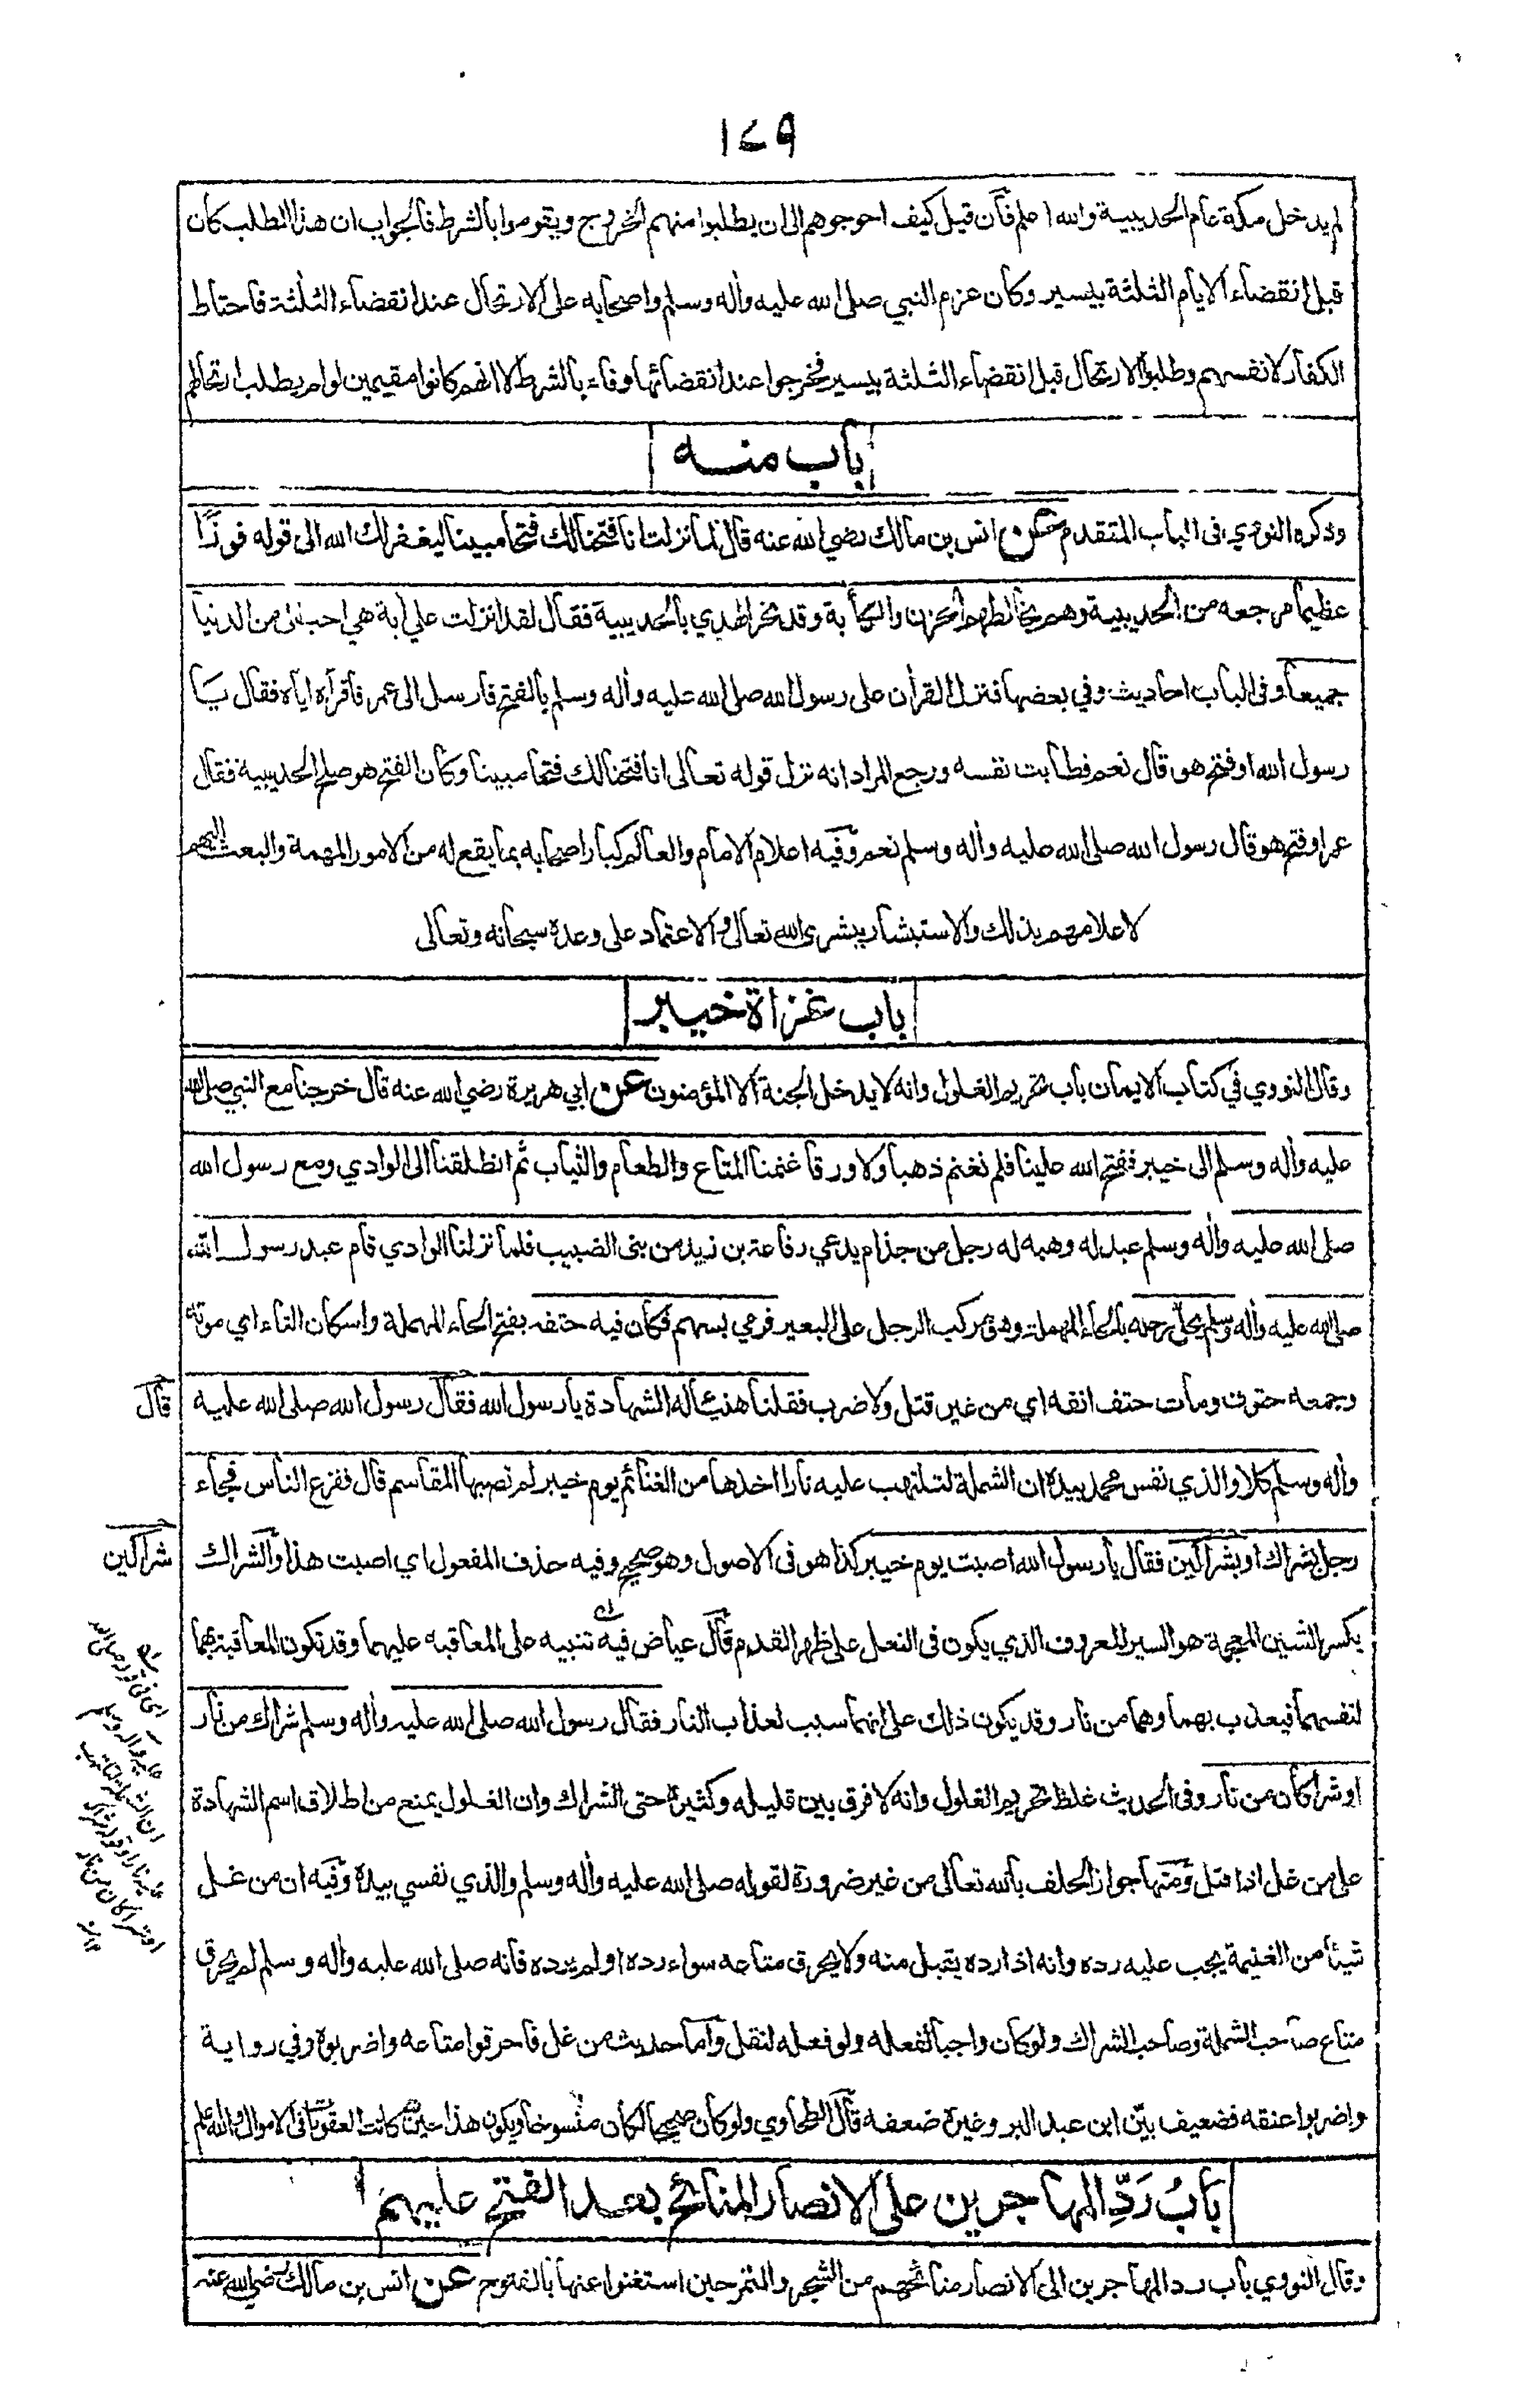 ١٧٩
لم يدخل مكة عام الحديبية والله اعلم فآن قيل كيف احوجوهم الى ان يطلبوا منهم الخروج ويقوموا بالشرط فالجواب ان هذا الطلب كان
قبل انقضاء الايام الثلثة بيسير وكان عزم النبي صلى الله عليه واٰله وسلم واصحابه على الارتحال عند انقضاء الثلثة فاحتاط
الكفار لانفسهم وطلبوا الارتحال قبل انقضاء الثلثة بيسير فخرجوا عند انقضائها وفاء بالشرط لا انهم كانوا مقيمين لو لم يطلب ارتحالهم
باب منه
وذكره النووي في الباب المتقدم عن انس بن مالك رضي الله عنه قال لما نزلت انا فتحنا لك فتحا مبينا ليغفر لك الله الى قوله فوزًا
عظيما مرجعه من الحديبية وهم يخالطهم الحزن والكأبة وقد نحر الهدي بالحديبية فقال لقد انزلت علي أية هي احب الي من الدنيا
جميعا وفى الباب احاديث وفي بعضها فنزل القرأن على رسول الله صلى الله عليه واٰله وسلم بالفتح فارسل الى عمر فاقرأه اياه فقال يا
رسول الله اوفتح هو قال نعم فطابت نفسه ورجع المراد انه نزل قوله تعالى انا فتحنا لك فتحا مبينا وكان الفتح هو صلح الحديبية فقال
عمر اوفتح هو قال رسول الله صلى الله عليه واٰله وسلم نعم وفيه اعلام الامام والعالم كبار اصحابه بما يقع له من الامور المهمة والبعث اليهم
لاعلامهم بذلك والاستبشار ببشرى الله تعالى والاعتماد على وعده سبحانه وتعالى
باب غزاة خيبر
وقال النووي في كتاب الايمان باب تحريم الغلول وانه لا يدخل الجنة الا المؤمنون عن ابي هريرة رضي الله عنه قال خرجنا مع النبي صلى الله
عليه واٰله وسلم الى خيبر ففتح الله علينا فلم نغنم ذهبا ولا ورقا غنمنا المتاع والطعام والثياب ثم انطلقنا الى الوادي ومع رسول الله
صلى الله عليه واٰله وسلم عبد له وهبه له رجل من جذام يدعى رفاعة بن زيد من بنى الضبيب فلما نزلنا الوادي قام عبد رسول الله
صلى الله عليه واٰله وسلم يحل رحله بالحاء المهملة وهو مركب الرجل على البعير فرمي بسهم فكان فيه حتفه بفتح الحاء المهملة واسكان التاء اي موته
وجمعه حتوف ومات حتف انفه اي من غير قتل ولا ضرب فقلنا هنيئا له الشهادة يا رسول الله فقال رسول الله صلى الله عليه
قال
واٰله وسلم كلا والذي نفس محمد بيده ان الشملة لتلتهب عليه نارا اخذها من الغنائم يوم خيبر لم تصبها المقاسم قال ففزع الناس فجاء
رجل بشراك او بشراكين فقال يا رسول الله اصبت يوم خيبر كذا هو فى الاصول وهو صحيح وفيه حذف المفعول اي اصبت هذا والشراك
شراكين
بكسر الشين المعجمة هو السير المعروف الذي يكون فى النعل على ظهر القدم قال عياض فيه تنبيه على المعاقبه عليهما وقد تكون المعاقبة بهما
لنفسهما فيعذب بهما وهما من نار وقد يكون ذلك على انهما سبب لعذاب النار فقال رسول الله صلى الله عليه واٰله وسلم شراك من نار
او شراكان من نار وفى الحديث غلظ تحريم الغلول وانه لا فرق بين قليله وكثيره حتى الشراك وان الغلول يمنع من اطلاق اسم الشهادة
على من غل اذا قتل ومنها جواز الحلف بالله تعالى من غير ضرورة لقوله صلى الله عليه واٰله وسلم والذي نفسي بيده وفيه ان من غل
شيئا من الغنيمة يجب عليه رده وانه اذا رده يقبل منه ولا يحرق متاعه سواء رده او لم يرده فانه صلى الله عليه واٰله وسلم لم يحرق
متاع صاحب الشملة وصاحب الشراك ولو كان واجبا لفعله ولو فعله لنقل واما حديث من غل فاحرقوا متاعه واضربوه وفي رواية
واضربوا عنقه فضعيف بيّن ابن عبد البر وغيره ضعفه قال الطحاوي ولو كان صحيحا لكان منسوخا ويكون هذا حين كانت العقوبات فى الاموال والله اعلم
باب رَدِّ المهاجرين على الانصار المنائح بعد الفتح عليهم
وقال النووي باب رد المهاجرين الى الانصار منائحهم من الشجر والتمر حين استغنوا عنها بالفتوح عن انس بن مالك رضي الله عنه